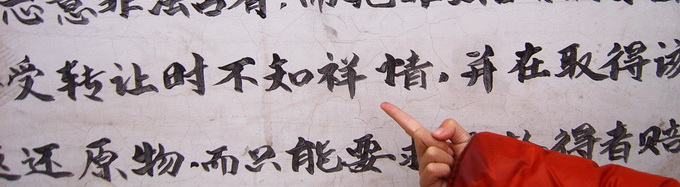 恶意非法占有，而
受转让时不知祥情，并在取得该
还原物．而只能要 得者赔